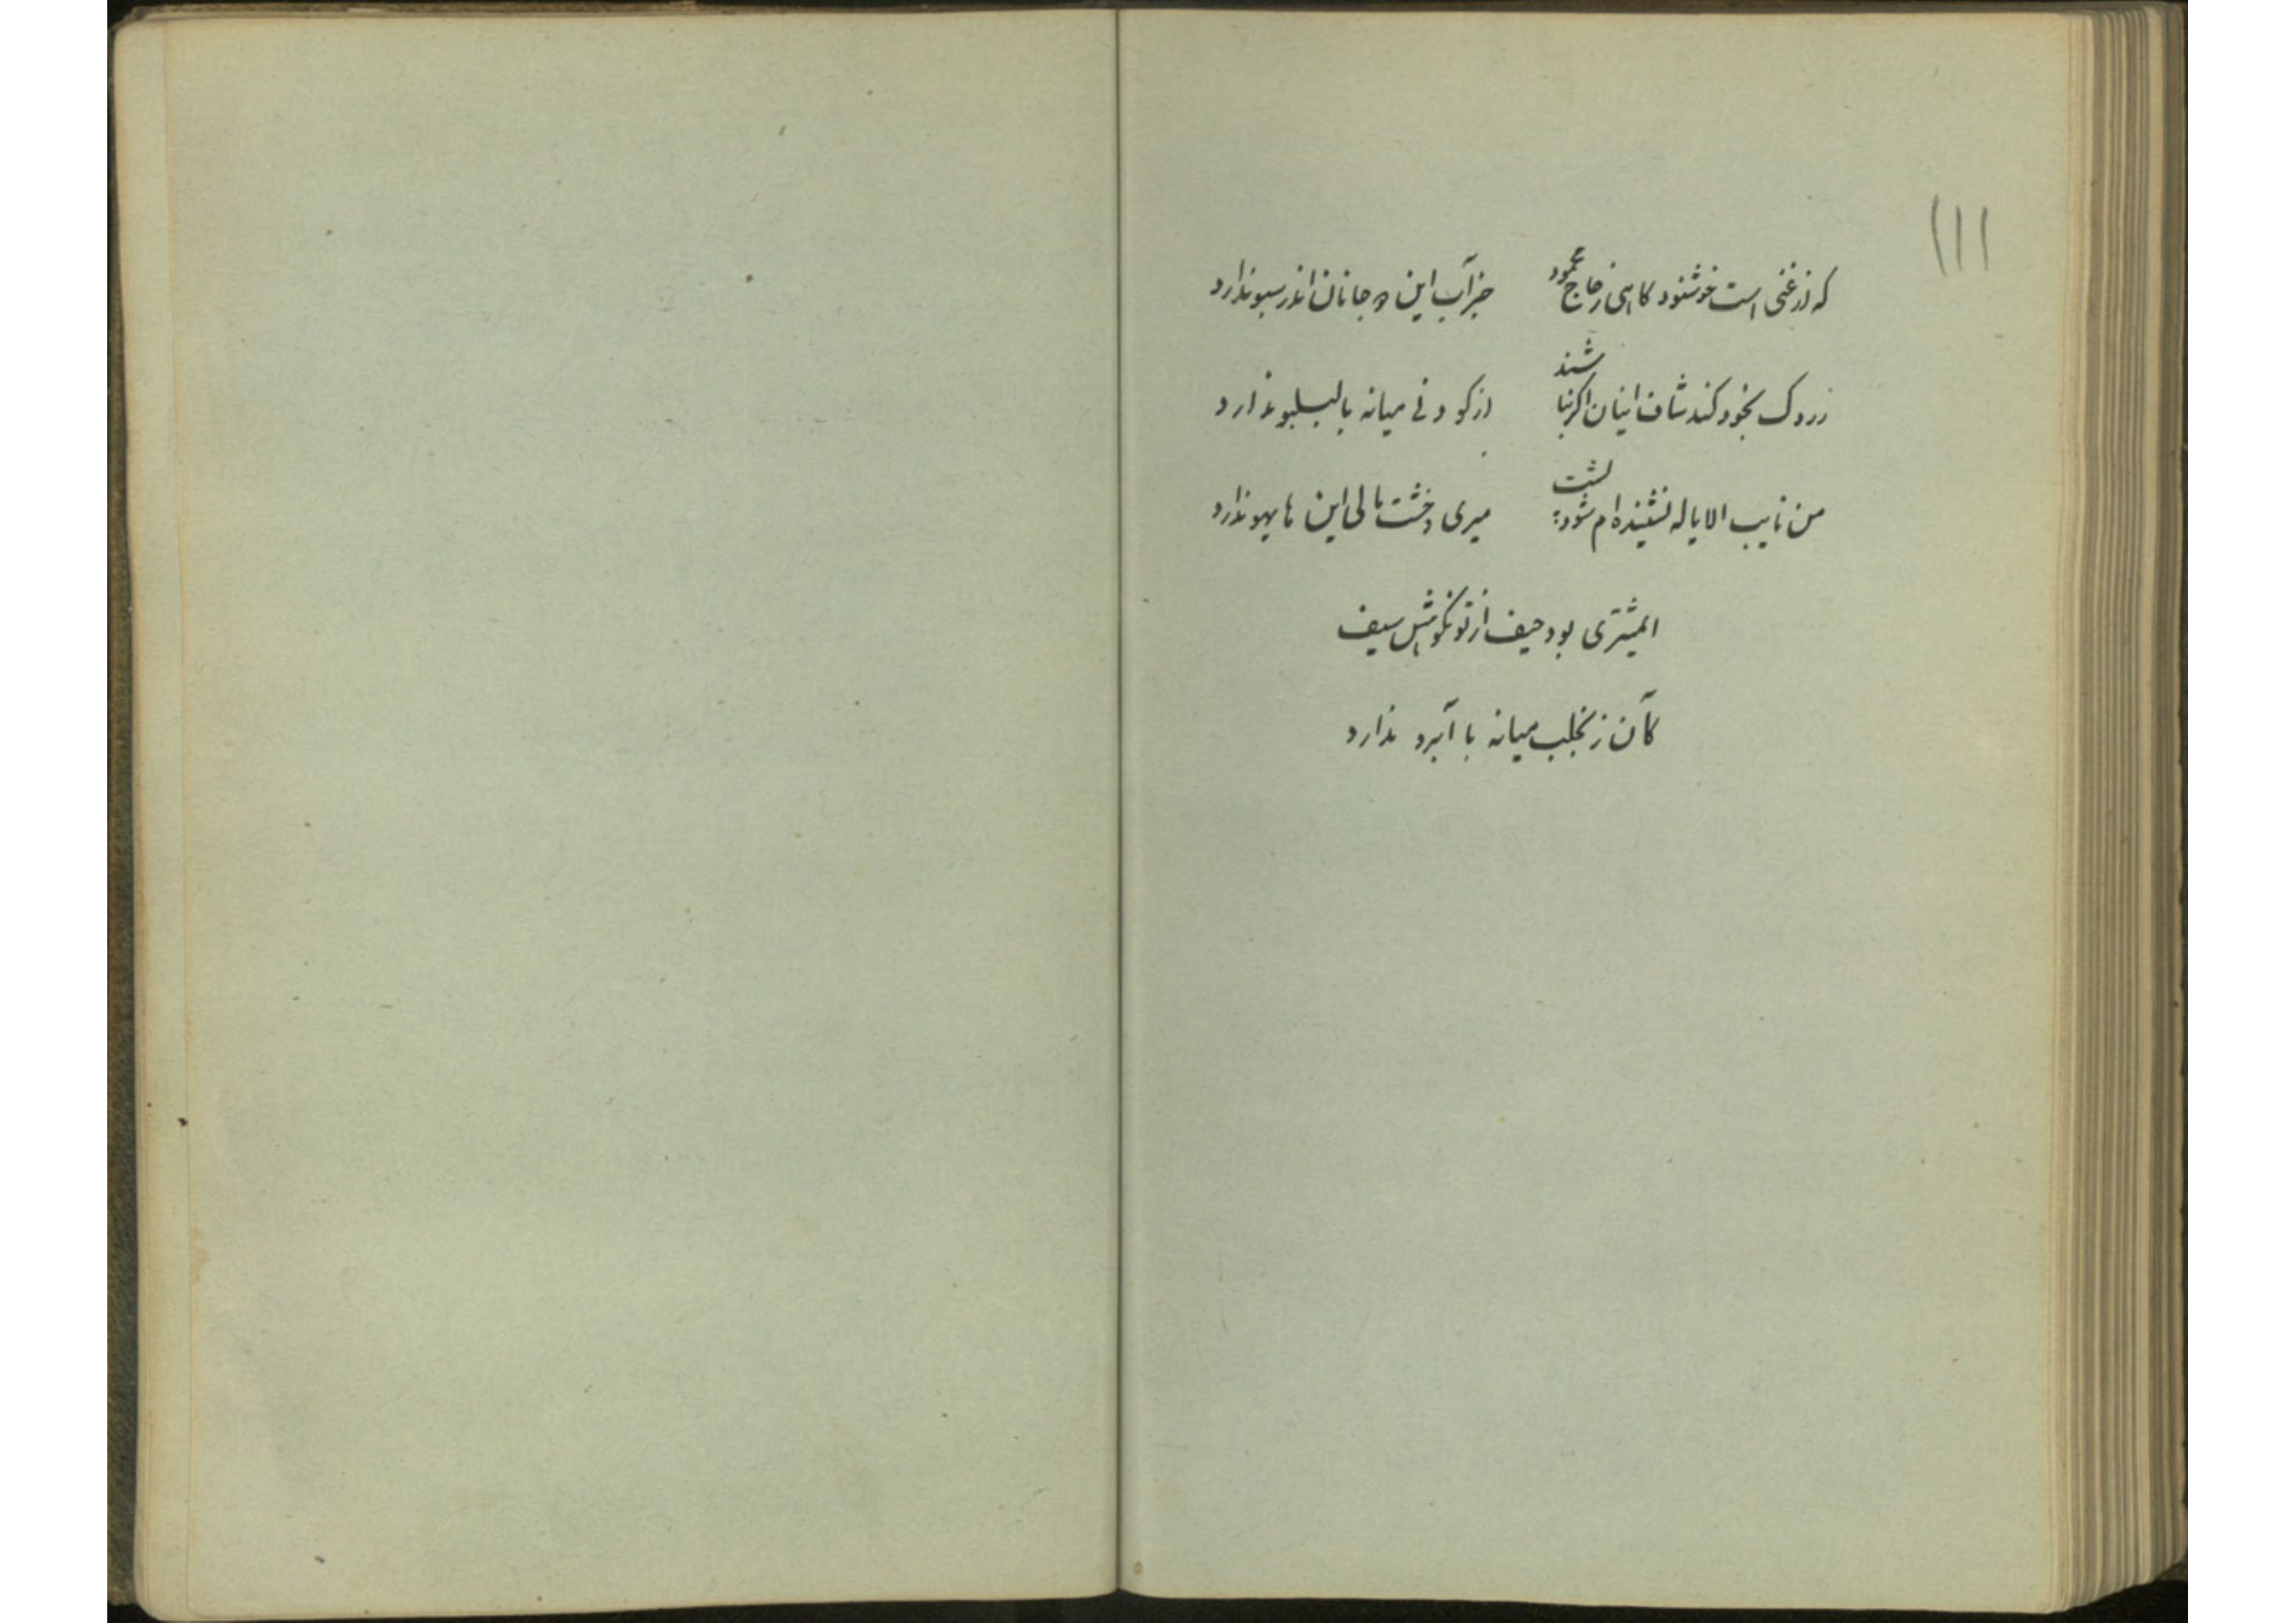 ۱۱۱
که از غنی است خوشنود کاهی ز حاج محمود جز آب این جانان اندر سبو ندارد
زردک بخود کند شان اینان اکر نباشند از کو دنی میانه با ندارد
من نایب الایاله نشنیده‌ام شود میری و خشت مالی این های هو ندارد
ایمشتری بود حیف از تو نکوهش سیف
کآن زن جلب میانه با آبرو ندارد